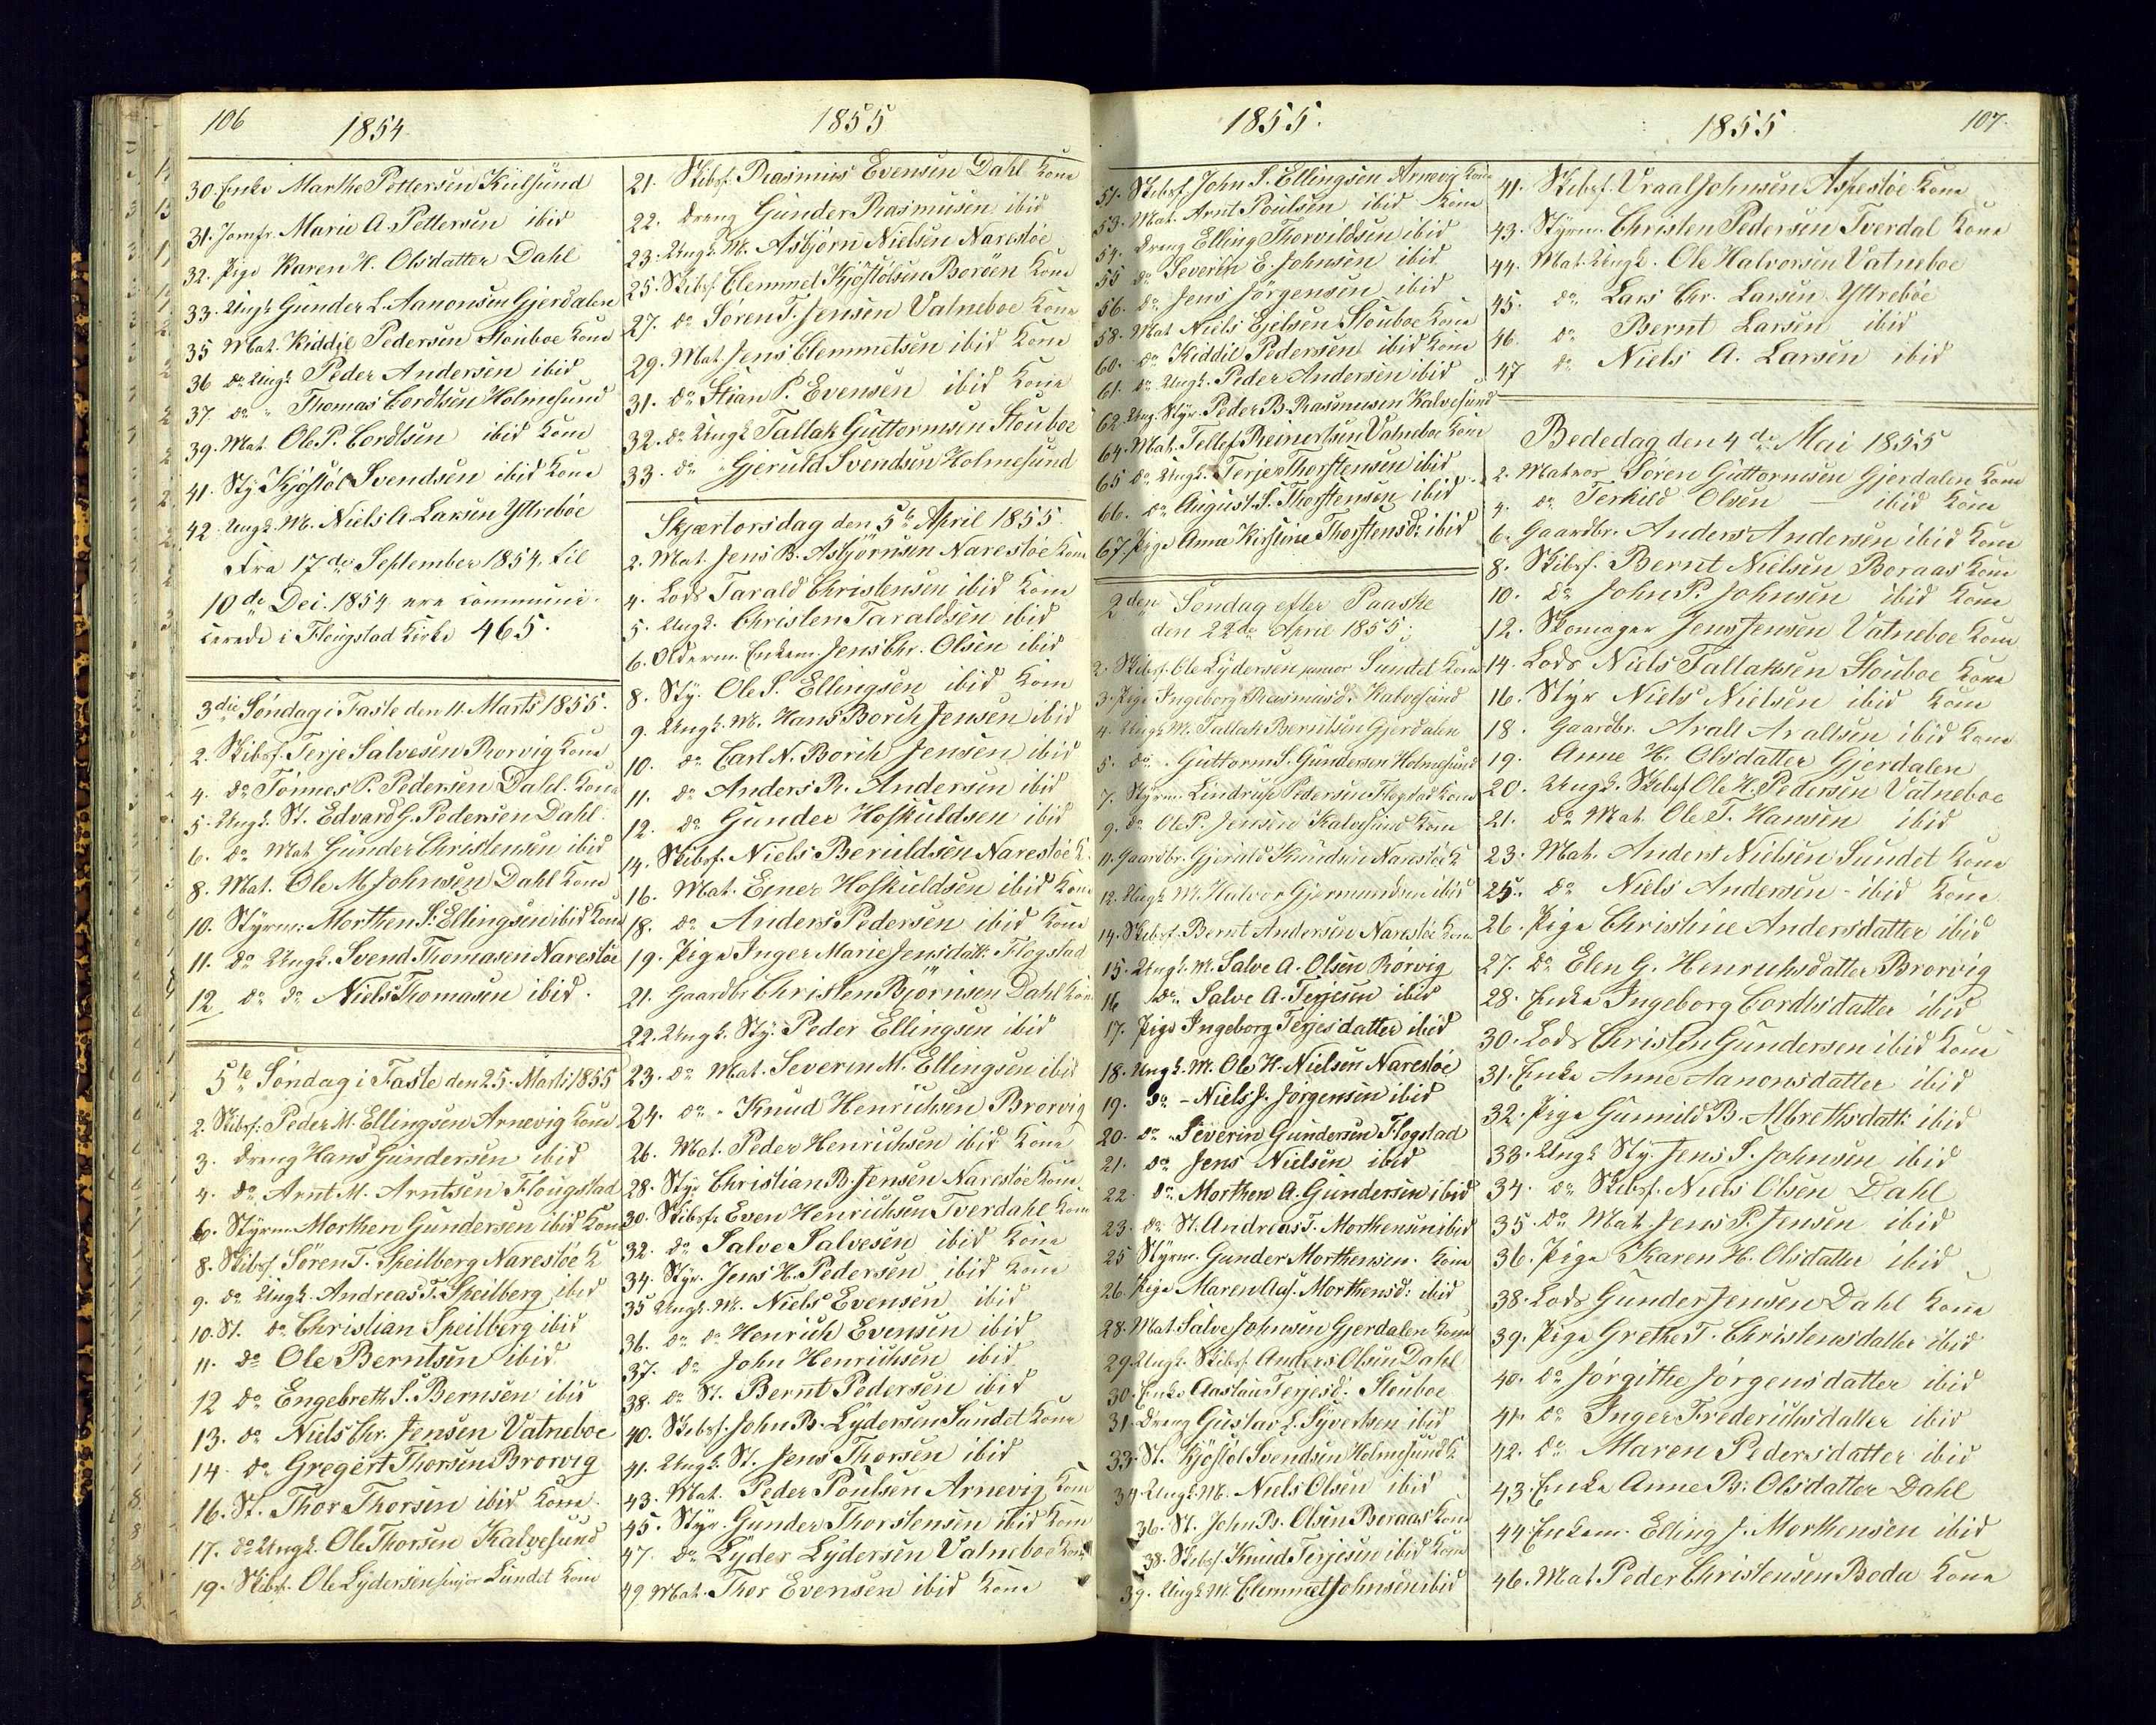 106
1854
30. Enke Marthe Pettersen Kiilsund
31. Jomfr. Marie A. Pettersen ibid
32. Pige Karen H. Olsdatter Dahl
33. Ungk. Gunder L. Aanonsen Gjerdalen
35 Mat. Kiddil Pedersen Stouboe Kone
36 do Ungk. Peder Andersen ibid
37 do " Thomas Cordtsen Holmesund
39. Mat. Ole P. Cordtsen ibid Kone
41. Sty. Kjöstöl Svendsen ibid Kone
42. Ungk. M. Niels A. Larsen Yttreböe
Fra 17de September 1854, til
10de Dec. 1854 ere communi-
cerede i Flougstad Kirke 465.
3die Söndag i Faste den 11. Marts 1855.
2. Skibsf. Terje Salvesen Brorvig Kone
4. do Tönnes P. Pedersen Dahl. Kone
5. Ungk. St. Edvard G. Pedersen Dahl.
6. do Mat Gunder Christensen ibid
8. Mat. Ole M. Johnsen Dahl Kone
10. Styrm: Morthen S. Ellingsen ibid Kone
11. do Ungk. Svend Thomasen Narestöe
12 do do Niels Thomasen ibid.
5te Söndag i Faste den 25. Marts 1855
2. Skibsf. Peder M. Ellingsen Arnevig Kone
3. Dreng Hans Gundersen ibid
4. do Arnt M. Arntsen Flougstad
6. Styrm. Morthen Gundersen ibid Kone
8. Skibsf Sören T. Speilberg Narestöe K
9. do Ungk. Andreas T. Speilberg ibid
10. St. do Christian Speilberg ibid
11. do Ole Berntsen ibid
12 do Engebreth S. Bernsen ibid
13. do Niels Chr. Jensen Vatneboe
14. do Gregert Thorsen Brorvig
16. St. Thor Thorsen ibid Kone.
17. do Ungk. Ole Thorsen Kalvesund
19. Skibsf. Ole Lydersen senjor Sundet Kone
1855
21. Skibsf. Rasmus Evensen Dahl Kone
22. Dreng Gunder Rasmusen ibid
23. Ungk. M. Asbjörn Nielsen Narestöe
25. Skibsf. Clemmet Kjöstölsen Boröen Kone
27. do Sören T. Jensen Vatneboe Kone
29. Mat. Jens Clemmetsen ibid Kone
31. do Stian P. Evensen ibid Kone
32. do Ungk Tallak Guttormsen Stouboe
33. do " Gjeruld Svendsen Holmesund
Skjærtorsdag den 5te April 1855.
2. Mat. Jens B. Asbjörnsen Narestöe Kone
4. Lods Tarald Christensen ibid Kone
5. Ungk. Christen Taraldsen ibid
6. Olderm. Enkem. Jens Chr. Olsen ibid
8. Sty. Ole S. Ellingsen ibid Kone
9. Ungk. M. Hans Borch Jensen ibid
10. do Carl N. Borch Jensen ibid
11. do Anders R. Andersen ibid
12. do Gunder Hoskuldsen ibid
14. Skibsf. Niels Beruldsen Narestöe K.
16. Mat. Einer Hoskuldsen ibid Kone
18. do Anders Pedersen ibid Kone
19. Pige Inger Marie Jensdatt. Flogstad
21. Gaardbr Christen Björnsen Dahl Kone
22. Ungk. Sty. Peder Ellingsen ibid
23. do Mat. Severin M. Ellingsen ibid
24. do " Knud Henrichsen Brorvig
26. Mat. Peder Henrichsen ibid Kone
28. Styr Christian B. Jensen Narestöe Kone
30. Skibsf. Even Henrichsen Tverdahl Kone
32. do Salve Salvesen ibid Kone
34. Styr. Jens H. Pedersen ibid Kone
35 Ungk. M. Niels Evensen ibid
36. do do Henrich Evensen ibid
37. do John Henrichsen ibid
38. do St. Bernt Pedersen ibid
40. Skibsf. John B. Lydersen Sundet Kone
41. Ungk. St. Jens Thorsen ibid
43. Mat. Peder Poulsen Arnevig Kone
45. Styr. Gunder Thorstensen ibid Kone
47. do Lyder Lydersen Vatneboe Kone
49 Mat. Thor Evensen ibid Kone
1855.
51. Skibsf. John S. Ellingsen Arnevig Kone
53. Mat. Arnt Poulsen ibid Kone
54. Dreng Elling Thorvildsen ibid
55 do Severin E. Johnsen ibid
56. do Jens Jörgensen ibid
58. Mat Niels Ejelsen Stouboe Kone
60. do Kiddil Pedersen ibid Kone
61. do Ungk. Peder Andersen ibid
62. Ung. Styr. Peder B. Rasmusen Kalvesund
64. Mat. Tellef Reinertsen Vatneboe Kone
65 do Ungk. Terje Thorstensen ibid
66. do August S. Thorstensen ibid
67. Pige Anna Kirstine Thorstensd: ibid
2den Söndag efter Paaske
den 22de April 1855.
2. Skibsf. Ole Lydersen junior Sundet Kone
3. Pige Ingeborg Rasmusd. Kalvesund
4. Ungk. M. Tallak Berntsen Gjerdalen
5. do " Guttorm S. Gundersen Holmesund
7. Styrm. Lindrup Pedersen Flogstad Kone
9. do Ole P. Jensen Kalvesund Kone
11. Gaardbr. Gjeruld Knudsen Narestöe K
12. Ungk. M. Halvor Gjermundsen ibid
14. Skibsf. Bernt Andersen Narestöe Kone
15. Ungk. M. Salve A. Olsen Rörvig
16 do " Salve A. Terjesen ibid
17. Pige Ingeborg Terjesdatter ibid
18. Ungk. M. Ole H. Nielsen Narestöe
19. do - Niels J. Jörgensen ibid
20. do " Severin Gundersen Flogstad
21. do Jens Nielsen ibid
22. do " Morthen A. Gundersen ibid
23. do St. Andreas T. Morthensen ibid
25 Styrm. Gunder Morthensen. Kone
26. Pige Maren Aas. Morthensd: ibid
28. Mat. Salve Johnsen Gjerdalen Kone
29. Ungk. Skibsf. Anders Olsen Dahl
30. Enke Aaslau Terjesd. Stouboe
31. Dreng Gustav L. Syvertsen ibid
33. St. Kjöstöl Svendsen Holmesund K
34. Ungk. M. Niels Olsen ibid
36. St. John B. Olsen Boraas Kone
38. Skibsf. Knud Terjesen ibid Kone
39. Ungk M. Clemmet Johnsen ibid
1855.
107.
41. Skibsf. Vraal Johnsen Aspestöe Kone
43. Styrm. Christen Pedersen Tverdal Kone
44. Mat. Ungk. Ole Halvorsen Vatneboe
45. do Lars Chr. Larsen Yttreböe
46. do Bernt Larsen ibid
47 do Niels A. Larsen ibid
Bededag den 4de Mai 1855
2. Matros Sören Guttormsen Gjerdalen Kone
4. do Terkild Olsen — ibid Kone
6. Gaardbr. Anders Andersen ibid Kone
8. Skibsf. Bernt Nielsen Boraas Kone
10. do John P. Johnsen ibid Kone
12. Skomager Jens Jensen Vatneboe Kone
14. Lods Niels Tallaksen Stouboe Kone
16. Styr Niels Nielsen ibid Kone
18. Gaardbr. Aralt Araltsen ibid Kone
19. Anne H. Olsdatter Gjerdalen
20. Ungk. Skibsf. Ole H. Pedersen Vatneboe
21. do Mat. Ole T. Hansen ibid
23. Mat. Anders Nielsen Sundet Kone
25. do Niels Andersen - ibid Kone
26. Pige Christine Andersdatter ibid
27. do Elen G. Henrichsdatter Brorvig
28. Enke Ingeborg Cordtsdatter ibid
30. Lods Christen Gundersen ibid Kone
31. Enke Anne Aanonsdatter ibid
32. Pige Gunnild B. Albrethsdatt: ibid
33. Ungk Sty. Jens S. Johnsen ibid
34. do Skibsf. Niels Olsen Dahl
35. do Mat. Jens P. Jensen ibid
36. Pige Karen H. Olsdatter ibid
38. Lods Gunder Jensen Dahl Kone
39. Pige Grethe T. Christensdatter ibid
40. do Jörgithe Jörgensdatter ibid
41. do Inger Frederichsdatter ibid
42. do Maren Pedersdatter ibid
43. Enke Anne B. Olsdatter Dahl
44. Enkem. Elling J. Morthensen ibid
46. Mat. Peder Christensen Bodu Kone